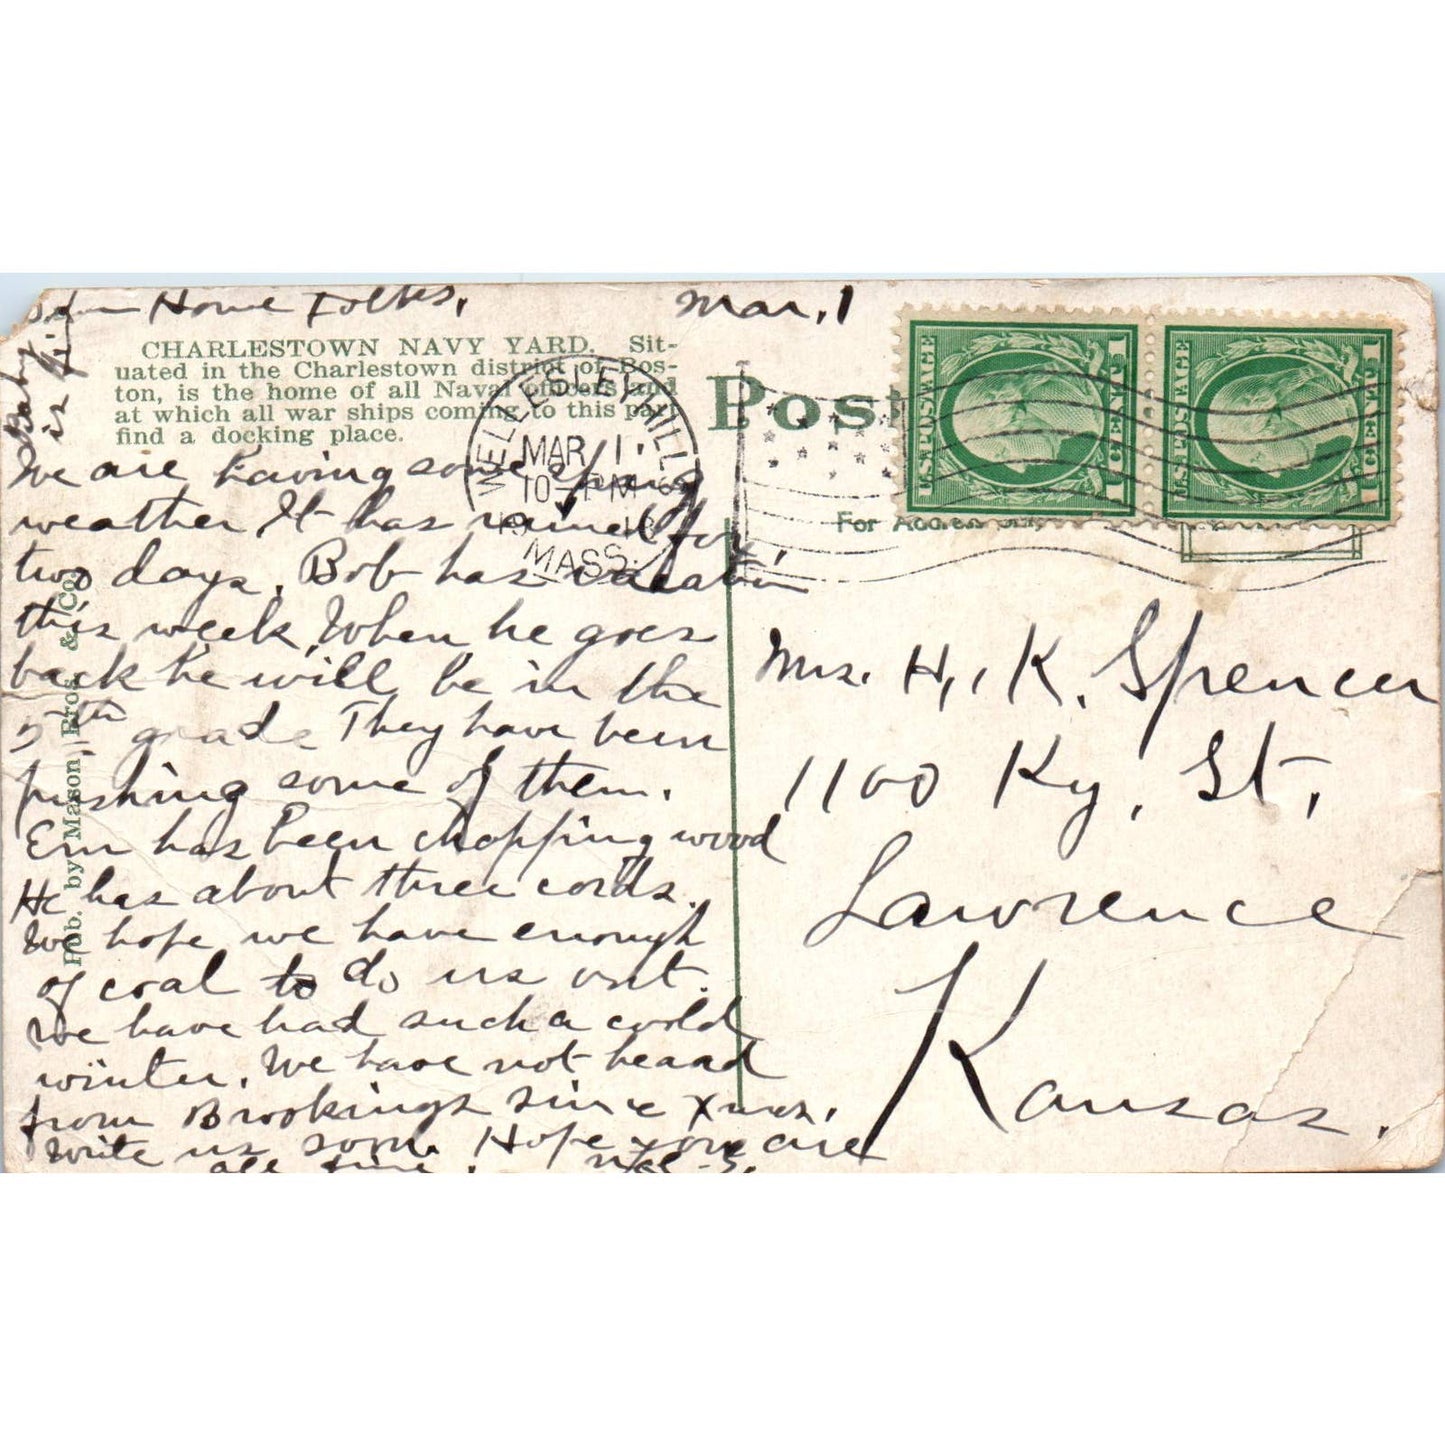 Home Folks,
Mar, 1
Baby
is fine
CHARLESTOWN NAVY YARD. Sit-
uated in the Charlestown district of Bos-
ton, is the home of all Naval officers and
at which all war ships coming to this part
find a docking place.
We are having some spring
weather It has rained for
two days. Bob has vacation
this week, When he goes
back he will be in the
5th grade They have been
pushing some of them.
Em has been chopping wood
He has about three cords.
We hope we have enough
of coal to do us out.
We have had such a cold
winter. We have not heard
from Brookings since Xmas.
Write us soon. Hope you are
all fine.
Pub. by Mason Bros. & Co.
WELLESLEY HILLS
MAR 1
10 PM
1918
MASS.
Post
For Address Only
U.S. POSTAGE
1 CENT 1
U.S. POSTAGE
1 CENT 1
Mrs. H, K. Spencer
1100 Ky, St,
Lawrence
Kansas.